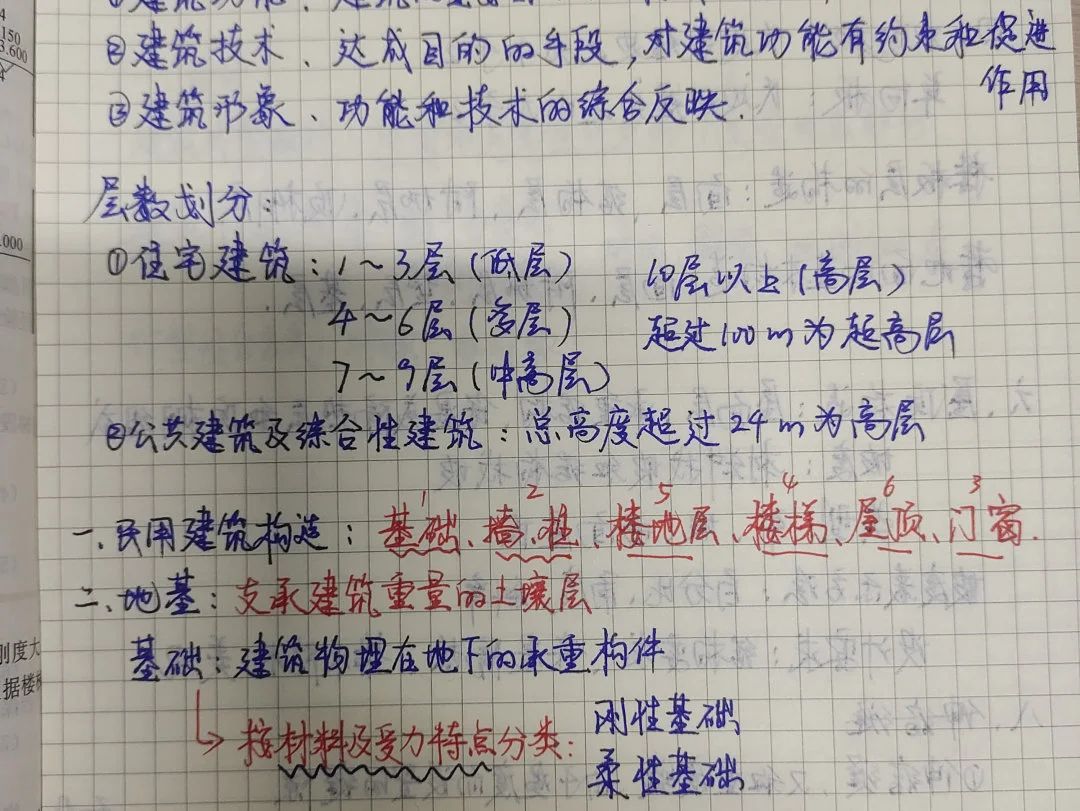 ②建筑技术、达成目的的手段,对建筑功能有约束和促进
作用
③建筑形象、功能和技术的综合反映.
层数划分:
①住宅建筑:1~3层(低层) 10层以上(高层)
4~6层(多层) 超过100m为超高层
7~9层(中高层)
②公共建筑及综合性建筑:总高度超过24m为高层
1 2 5 4 6 3
一.民用建筑构造:基础、墙、柱、楼地层、楼梯、屋顶、门窗.
二.地基:支承建筑重量的土壤层
基础:建筑物埋在地下的承重构件
按材料及受力特点分类:刚性基础
柔性基础
150
3.600
4
.000
刚度大
据楼